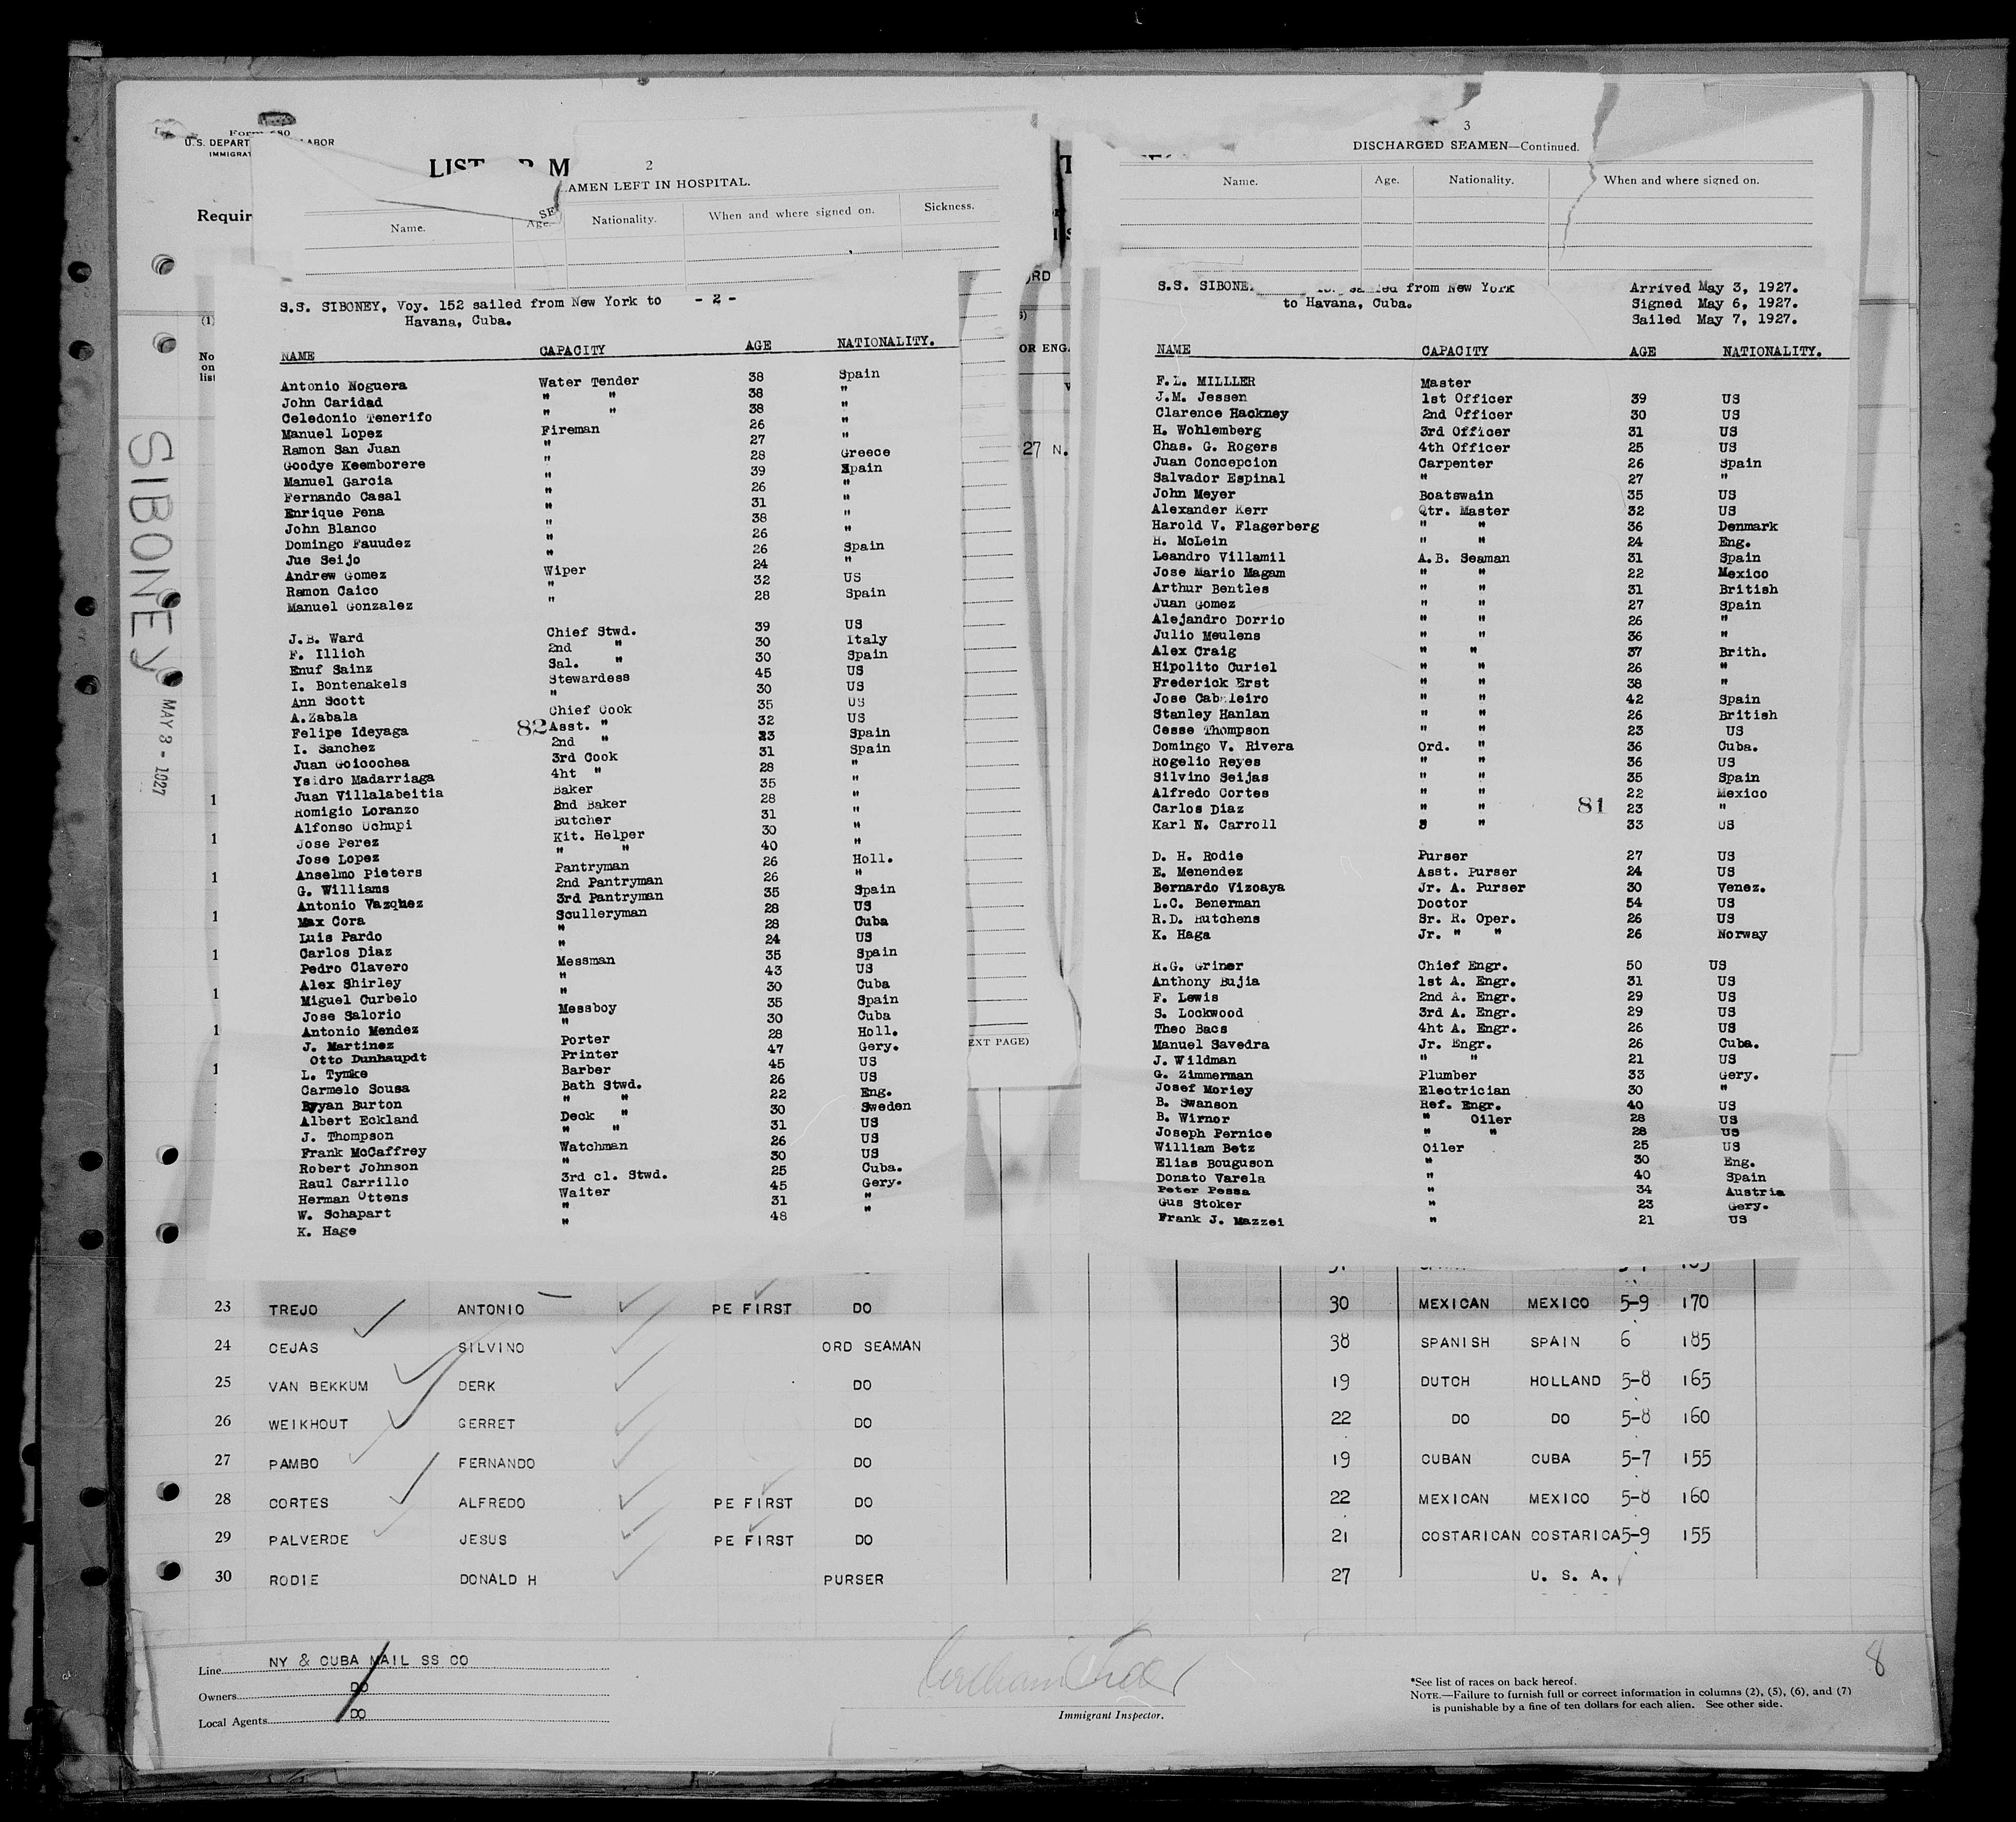 Form 680
U.S. DEPART ABOR
IMMIGRAT
LIST OR M
Requir
2
SEAMEN LEFT IN HOSPITAL.
Name. Age. Nationality. When and where signed on. Sickness.
S.S. SIBONEY, Voy. 152 sailed from New York to - 2 -
Havana, Cuba.
NAME CAPACITY AGE NATIONALITY.
Antonio Noguera Water Tender 38 Spain
John Caridad " " 38 "
Celedonio Tenerifo " " 38 "
Manuel Lopez Fireman 26 "
Ramon San Juan " 27 "
Goodye Keemborere " 28 Greece
Manuel Garcia " 39 Spain
Fernando Casal " 26 "
Enrique Pena " 31 "
John Blanco " 38 "
Domingo Fauudez " 26 "
Jue Seijo " 26 Spain
Andrew Gomez Wiper 24 "
Ramon Caico " 32 US
Manuel Gonzalez " 28 Spain
J.B. Ward Chief Stwd. 39 US
F. Illich 2nd " 30 Italy
Enuf Sainz Sal. " 30 Spain
I. Bontenakels Stewardess 45 US
Ann Scott " 30 US
A.Zabala Chief Cook 35 US
Felipe Ideyaga 82 Asst. " 32 US
I. Sanchez 2nd " 23 Spain
Juan Goicochea 3rd Cook 31 Spain
Ysidro Madarriaga 4ht " 28 "
Juan Villalabeitia Baker 35 "
Romigio Loranzo 2nd Baker 28 "
Alfonso Uchupi Butcher 31 "
Jose Perez Kit. Helper 30 "
Jose Lopez " " 40 "
Anselmo Pieters Pantryman 26 Holl.
G. Williams 2nd Pantryman 26 "
Antonio Vazqhez 3rd Pantryman 35 Spain
Max Cora Sculleryman 28 US
Luis Pardo " 28 Cuba
Carlos Diaz " 24 US
Pedro Clavero Messman 35 Spain
Alex Shirley " 43 US
Miguel Curbelo " 30 Cuba
Jose Salorio Messboy 35 Spain
Antonio Mendez " 30 Cuba
J. Martinez Porter 28 Holl.
Otto Dunhaupdt Printer 47 Gery.
L. Tymke Barber 45 US
Carmelo Sousa Bath Stwd. 26 US
Bryan Burton " " 22 Eng.
Albert Eckland Deck " 30 Sweden
J. Thompson " " 31 US
Frank McCaffrey Watchman 26 US
Robert Johnson " 30 US
Raul Carrillo 3rd cl. Stwd. 25 Cuba.
Herman Ottens Waiter 45 Gery.
W. Schapart " 31 "
K. Hage " 48 "
3
DISCHARGED SEAMEN—Continued.
Name. Age. Nationality. When and where signed on.
S.S. SIBONE sailed from New York Arrived May 3, 1927.
to Havana, Cuba. Signed May 6, 1927.
Sailed May 7, 1927.
NAME CAPACITY AGE NATIONALITY.
F.L. MILLLER Master
J.M. Jessen 1st Officer 39 US
Clarence Hackney 2nd Officer 30 US
H. Wohlemberg 3rd Officer 31 US
Chas. G. Rogers 4th Officer 25 US
Juan Concepcion Carpenter 26 Spain
Salvador Espinal " 27 "
John Meyer Boatswain 35 US
Alexander Kerr Qtr. Master 32 US
Harold V. Flagerberg " " 36 Denmark
H. McLein " " 24 Eng.
Leandro Villamil A.B. Seaman 31 Spain
Jose Mario Magam " " 22 Mexico
Arthur Bentles " " 31 British
Juan Gomez " " 27 Spain
Alejandro Dorrio " " 26 "
Julio Meulens " " 36 "
Alex Craig " " 37 Brith.
Hipolito Curiel " " 26 "
Frederick Erst " " 38 "
Jose Cabaleiro " " 42 Spain
Stanley Hanlan " " 26 British
Cesse Thompson " " 23 US
Domingo V. Rivera Ord. " 36 Cuba.
Rogelio Reyes " " 36 US
Silvino Seijas " " 35 Spain
Alfredo Cortes " " 22 Mexico
Carlos Diaz " " 81 23 "
Karl N. Carroll " " 33 US
D. H. Rodie Purser 27 US
E. Menendez Asst. Purser 24 US
Bernardo Vizoaya Jr. A. Purser 30 Venez.
L.C. Benerman Doctor 54 US
R.D. Hutchens Sr. R. Oper. 26 US
K. Haga Jr. " " 26 Norway
R.G. Griner Chief Engr. 50 US
Anthony Bujia 1st A. Engr. 31 US
F. Lewis 2nd A. Engr. 29 US
S. Lockwood 3rd A. Engr. 29 US
Theo Bacs 4ht A. Engr. 26 US
Manuel Savedra Jr. Engr. 26 Cuba.
J. Wildman " " 21 US
G. Zimmerman Plumber 33 Gery.
Josef Morley Electrician 30 "
B. Swanson Ref. Engr. 40 US
B. Wirnor " Oiler 28 US
Joseph Pernice " " 28 US
William Betz Oiler 25 US
Elias Bouguson " 30 Eng.
Donato Varela " 40 Spain
Peter Pessa " 34 Austria
Gus Stoker " 23 Gery.
Frank J. Mazzei " 21 US
SIBONEY
MAY 3 - 1927
(1)
No
on
list
ORD
OR ENG.
27 N.
EXT PAGE)
23 TREJO ANTONIO PE FIRST DO 30 MEXICAN MEXICO 5-9 170
24 CEJAS SILVINO ORD SEAMAN 38 SPANISH SPAIN 6 185
25 VAN BEKKUM DERK DO 19 DUTCH HOLLAND 5-8 165
26 WEIKHOUT GERRET DO 22 DO DO 5-8 160
27 PAMBO FERNANDO DO 19 CUBAN CUBA 5-7 155
28 CORTES ALFREDO PE FIRST DO 22 MEXICAN MEXICO 5-8 160
29 PALVERDE JESUS PE FIRST DO 21 COSTARICAN COSTARICA 5-9 155
30 RODIE DONALD H PURSER 27 U. S. A.
Line NY & CUBA MAIL SS CO
Owners DO
Local Agents DO
Immigrant Inspector.
8
*See list of races on back hereof.
NOTE.—Failure to furnish full or correct information in columns (2), (5), (6), and (7)
is punishable by a fine of ten dollars for each alien. See other side.